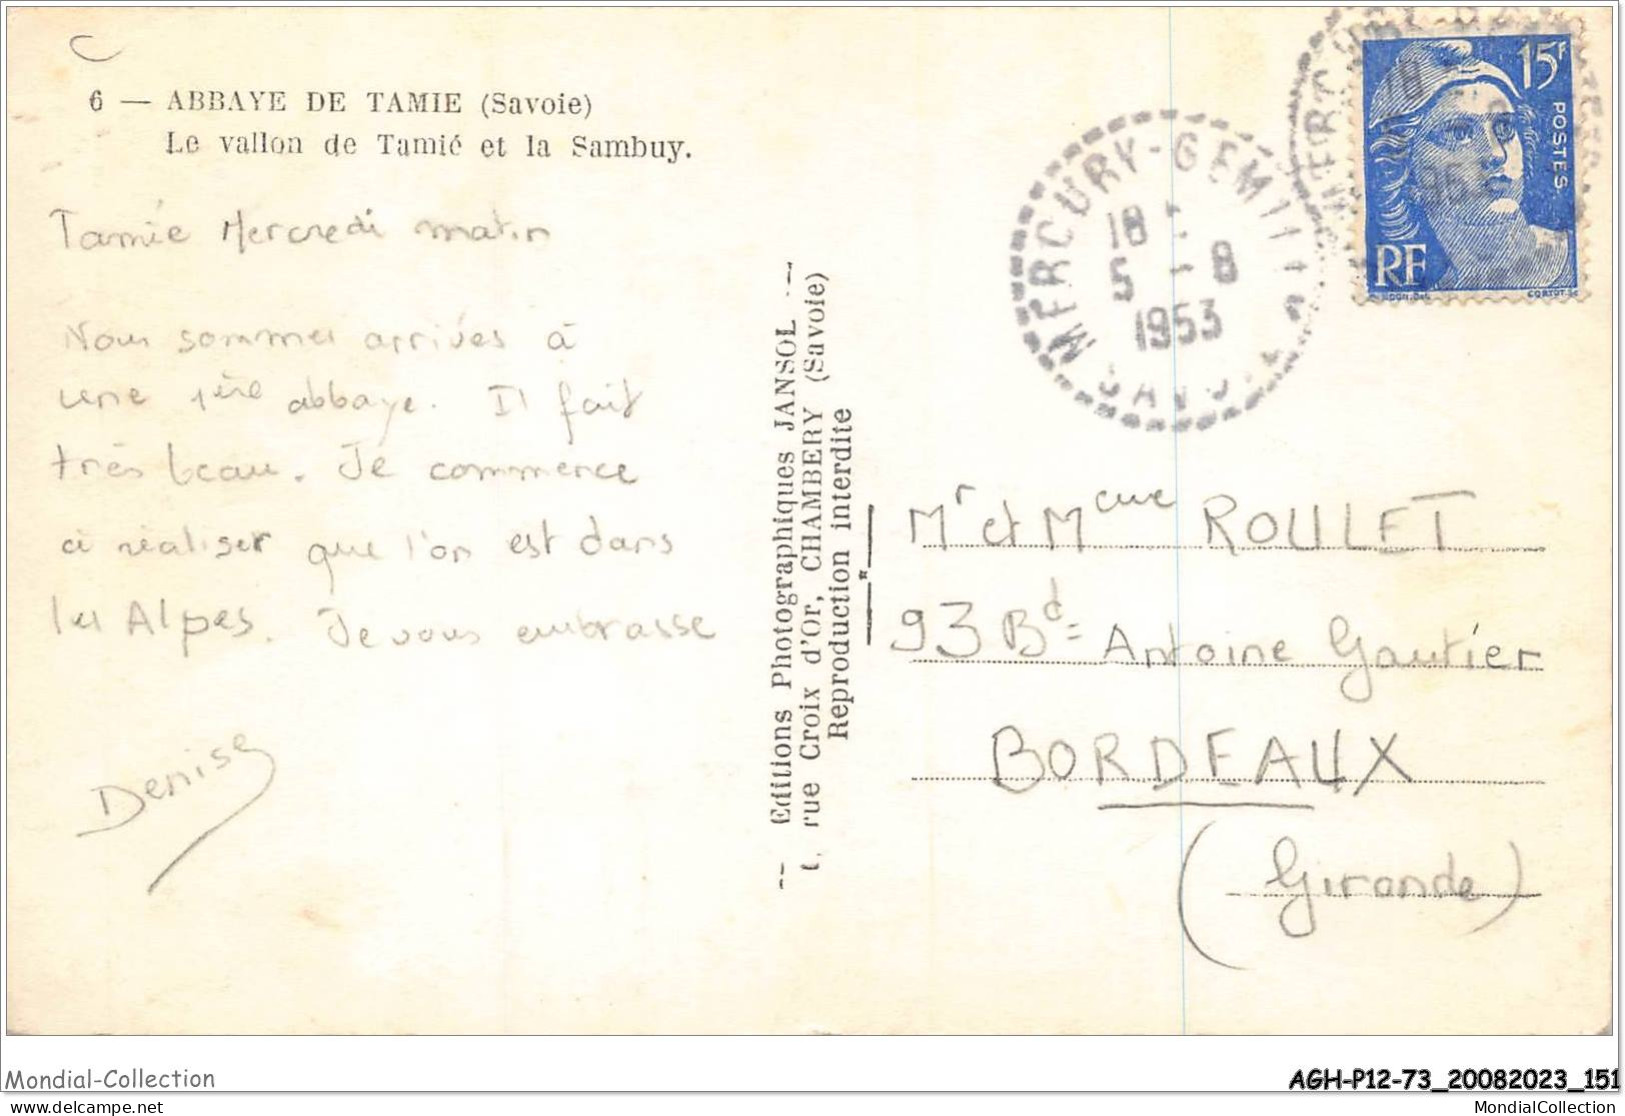 6 — ABBAYE DE TAMIE (Savoie)
Le vallon de Tamié et la Sambuy.
Tamié Mercredi matin
Nous sommes arrivés à
une 1ère abbaye. Il fait
très beau. Je commence
à réaliser que l'on est dans
les Alpes. Je vous embrasse
Denise
-- Editions Photographiques JANSOL --
rue Croix d'Or, CHAMBERY (Savoie)
Reproduction interdite
MERCURY-GEMILLY
18
5 - 8
1953
SAVOIE
15F
POSTES
RF
Mr et Mme ROULET
93 Bd= Antoine Gautier
BORDEAUX
(Gironde)
Mondial-Collection
AGH-P12-73_20082023_151
mondial-collection
MondialCollection